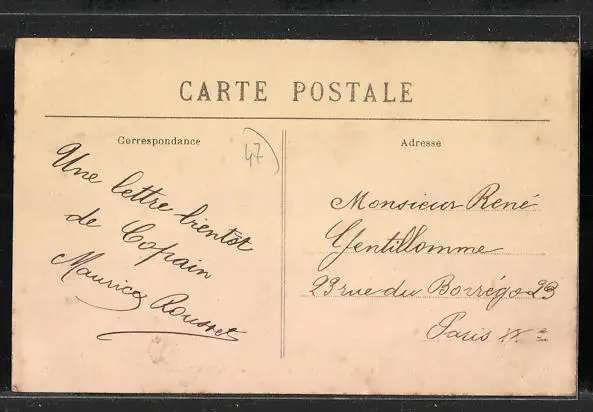 CARTE POSTALE
Correspondance
47
Une lettre bientot
de Copain
Maurice Rousset
Adresse
Monsieur René
Gentillomme
23 rue du Borrégo 23
Paris